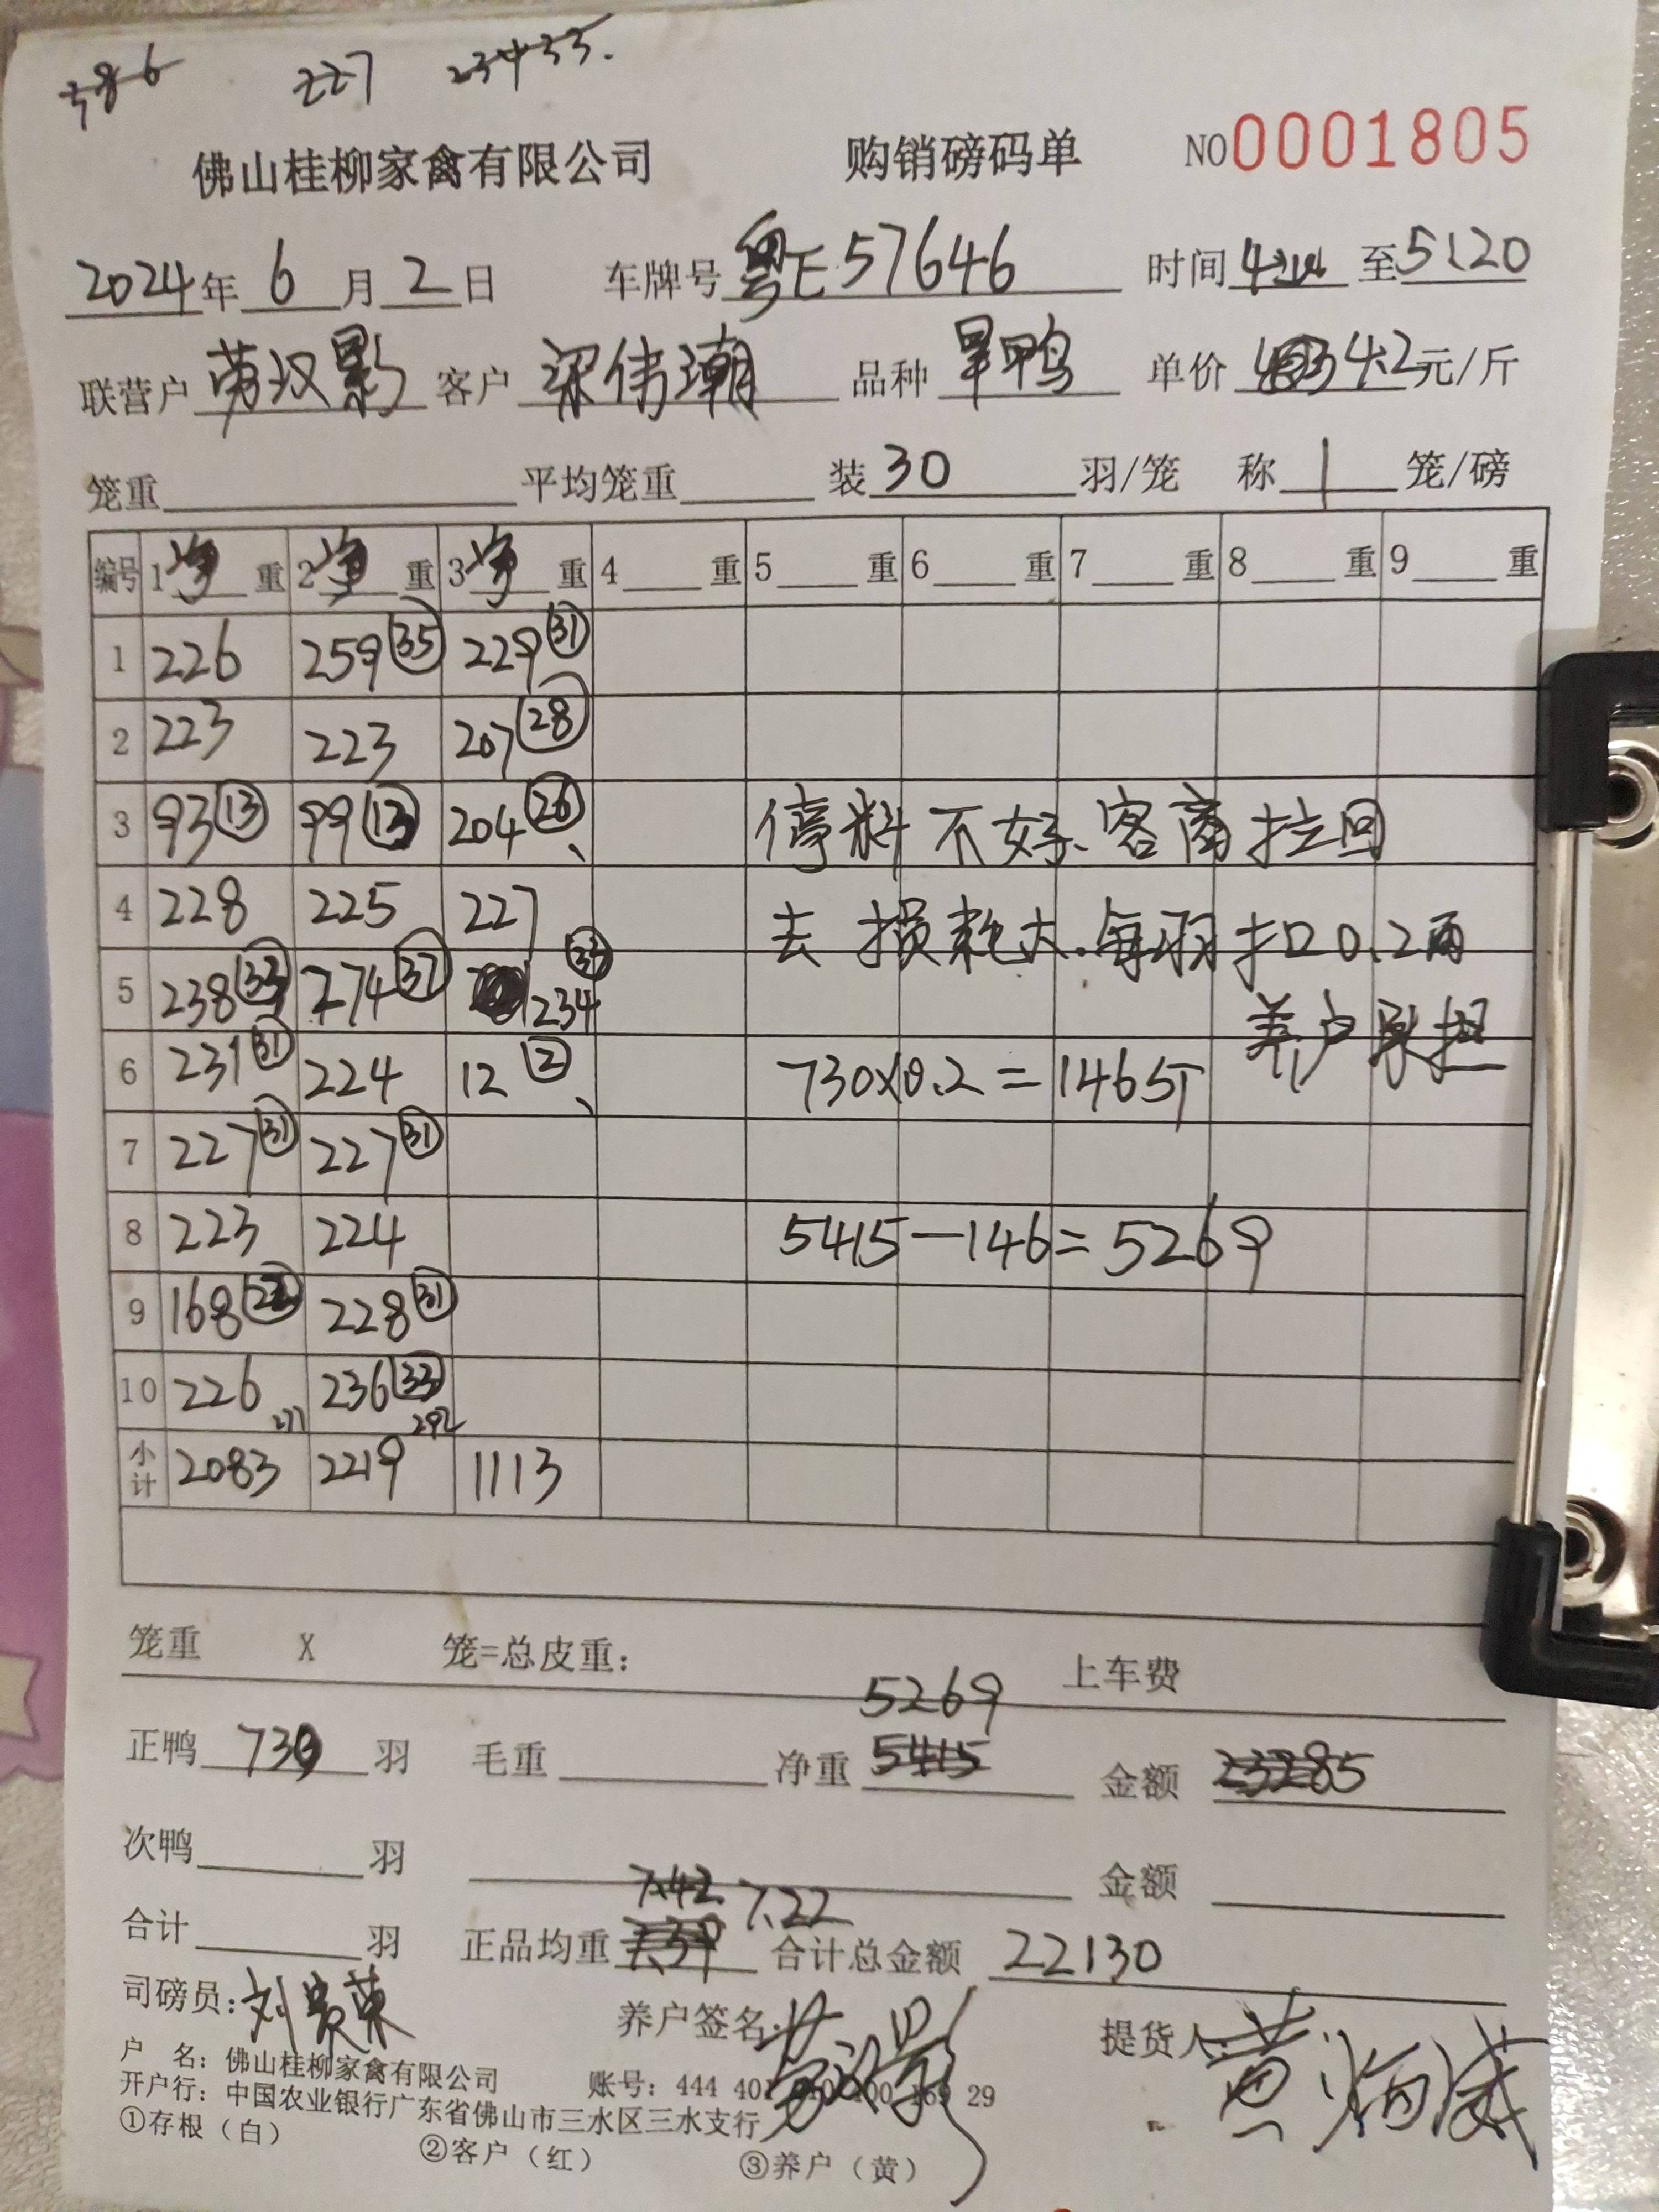 386 227 23433.
佛山桂柳家禽有限公司 购销磅码单 NO 0001805
2024年 6月 2日 车牌号 粤E57646 时间 至 5:20
联营户 劳汉影 客户 梁伟潮 品种 旱鸭 单价 4.2元/斤
笼重 平均笼重 装 30 羽/笼 称 1 笼/磅
编号 1净重 2净重 3净重 4重 5重 6重 7重 8重 9重
1 226 259 35 229 31
2 223 223 207 28
3 93 13 99 13 204 26 停料不好、客商拉回
4 228 225 227 去损耗大.每羽扣0.2两
5 238 33 274 37 234 33 养户承担
6 231 31 224 12 2 730×0.2=146斤
7 227 31 227 31
8 223 224 5415-146=5269
9 168 22 228 31
10 226 236 33
277 292
小计 2083 2219 1113
笼重 X 笼=总皮重: 上车费
5269
正鸭 730 羽 毛重 净重 5415 金额 23285
次鸭 羽 金额
7.42 7.22
合计 羽 正品均重 7.39 合计总金额 22130
司磅员: 刘贵荣 养户签名: 劳汉影 提货人: 黄炳威
户 名: 佛山桂柳家禽有限公司 账号: 444 29
开户行: 中国农业银行广东省佛山市三水区三水支行
①存根(白) ②客户(红) ③养户(黄)